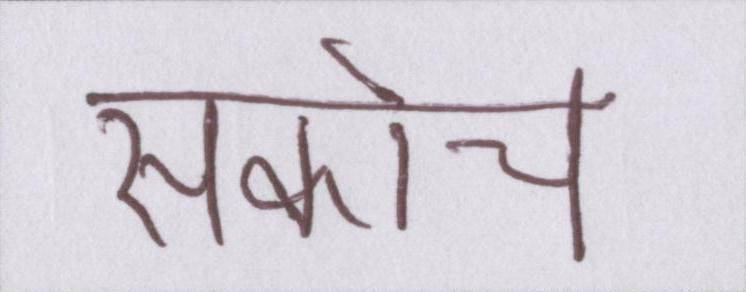 सकोच